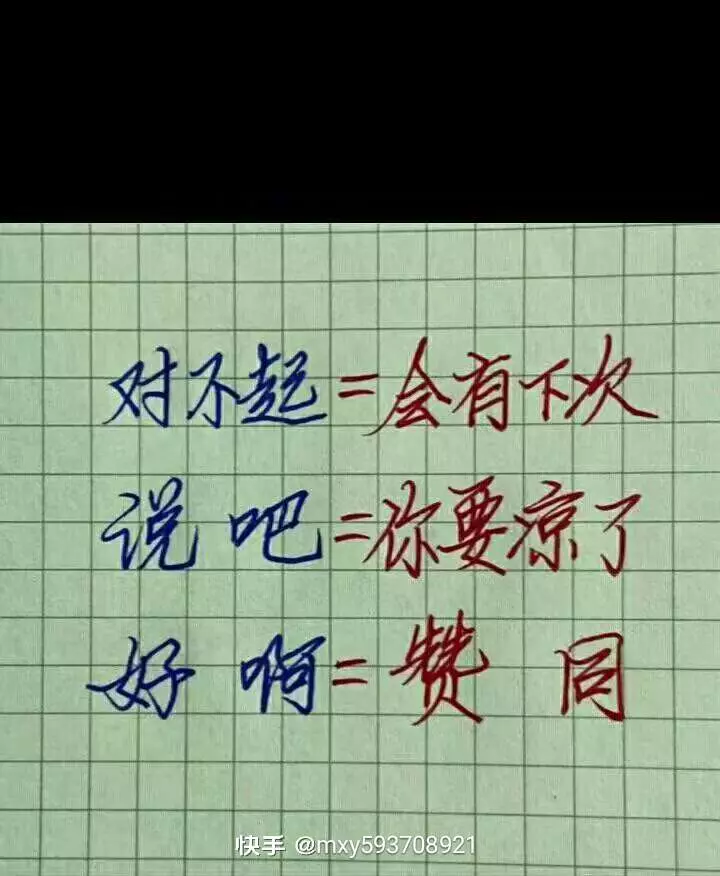 对不起=会有下次
说吧=你要凉了
好啊=赞同
快手 @mxy593708921